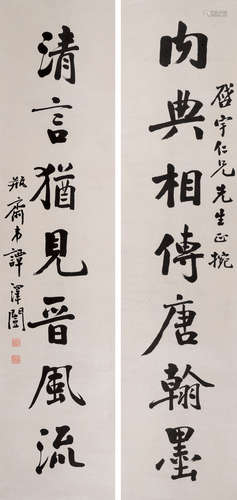 內典相傳唐翰墨
啟宇仁兄先生正捥
清言猶見晉風流
瓶齋弟譚澤闓